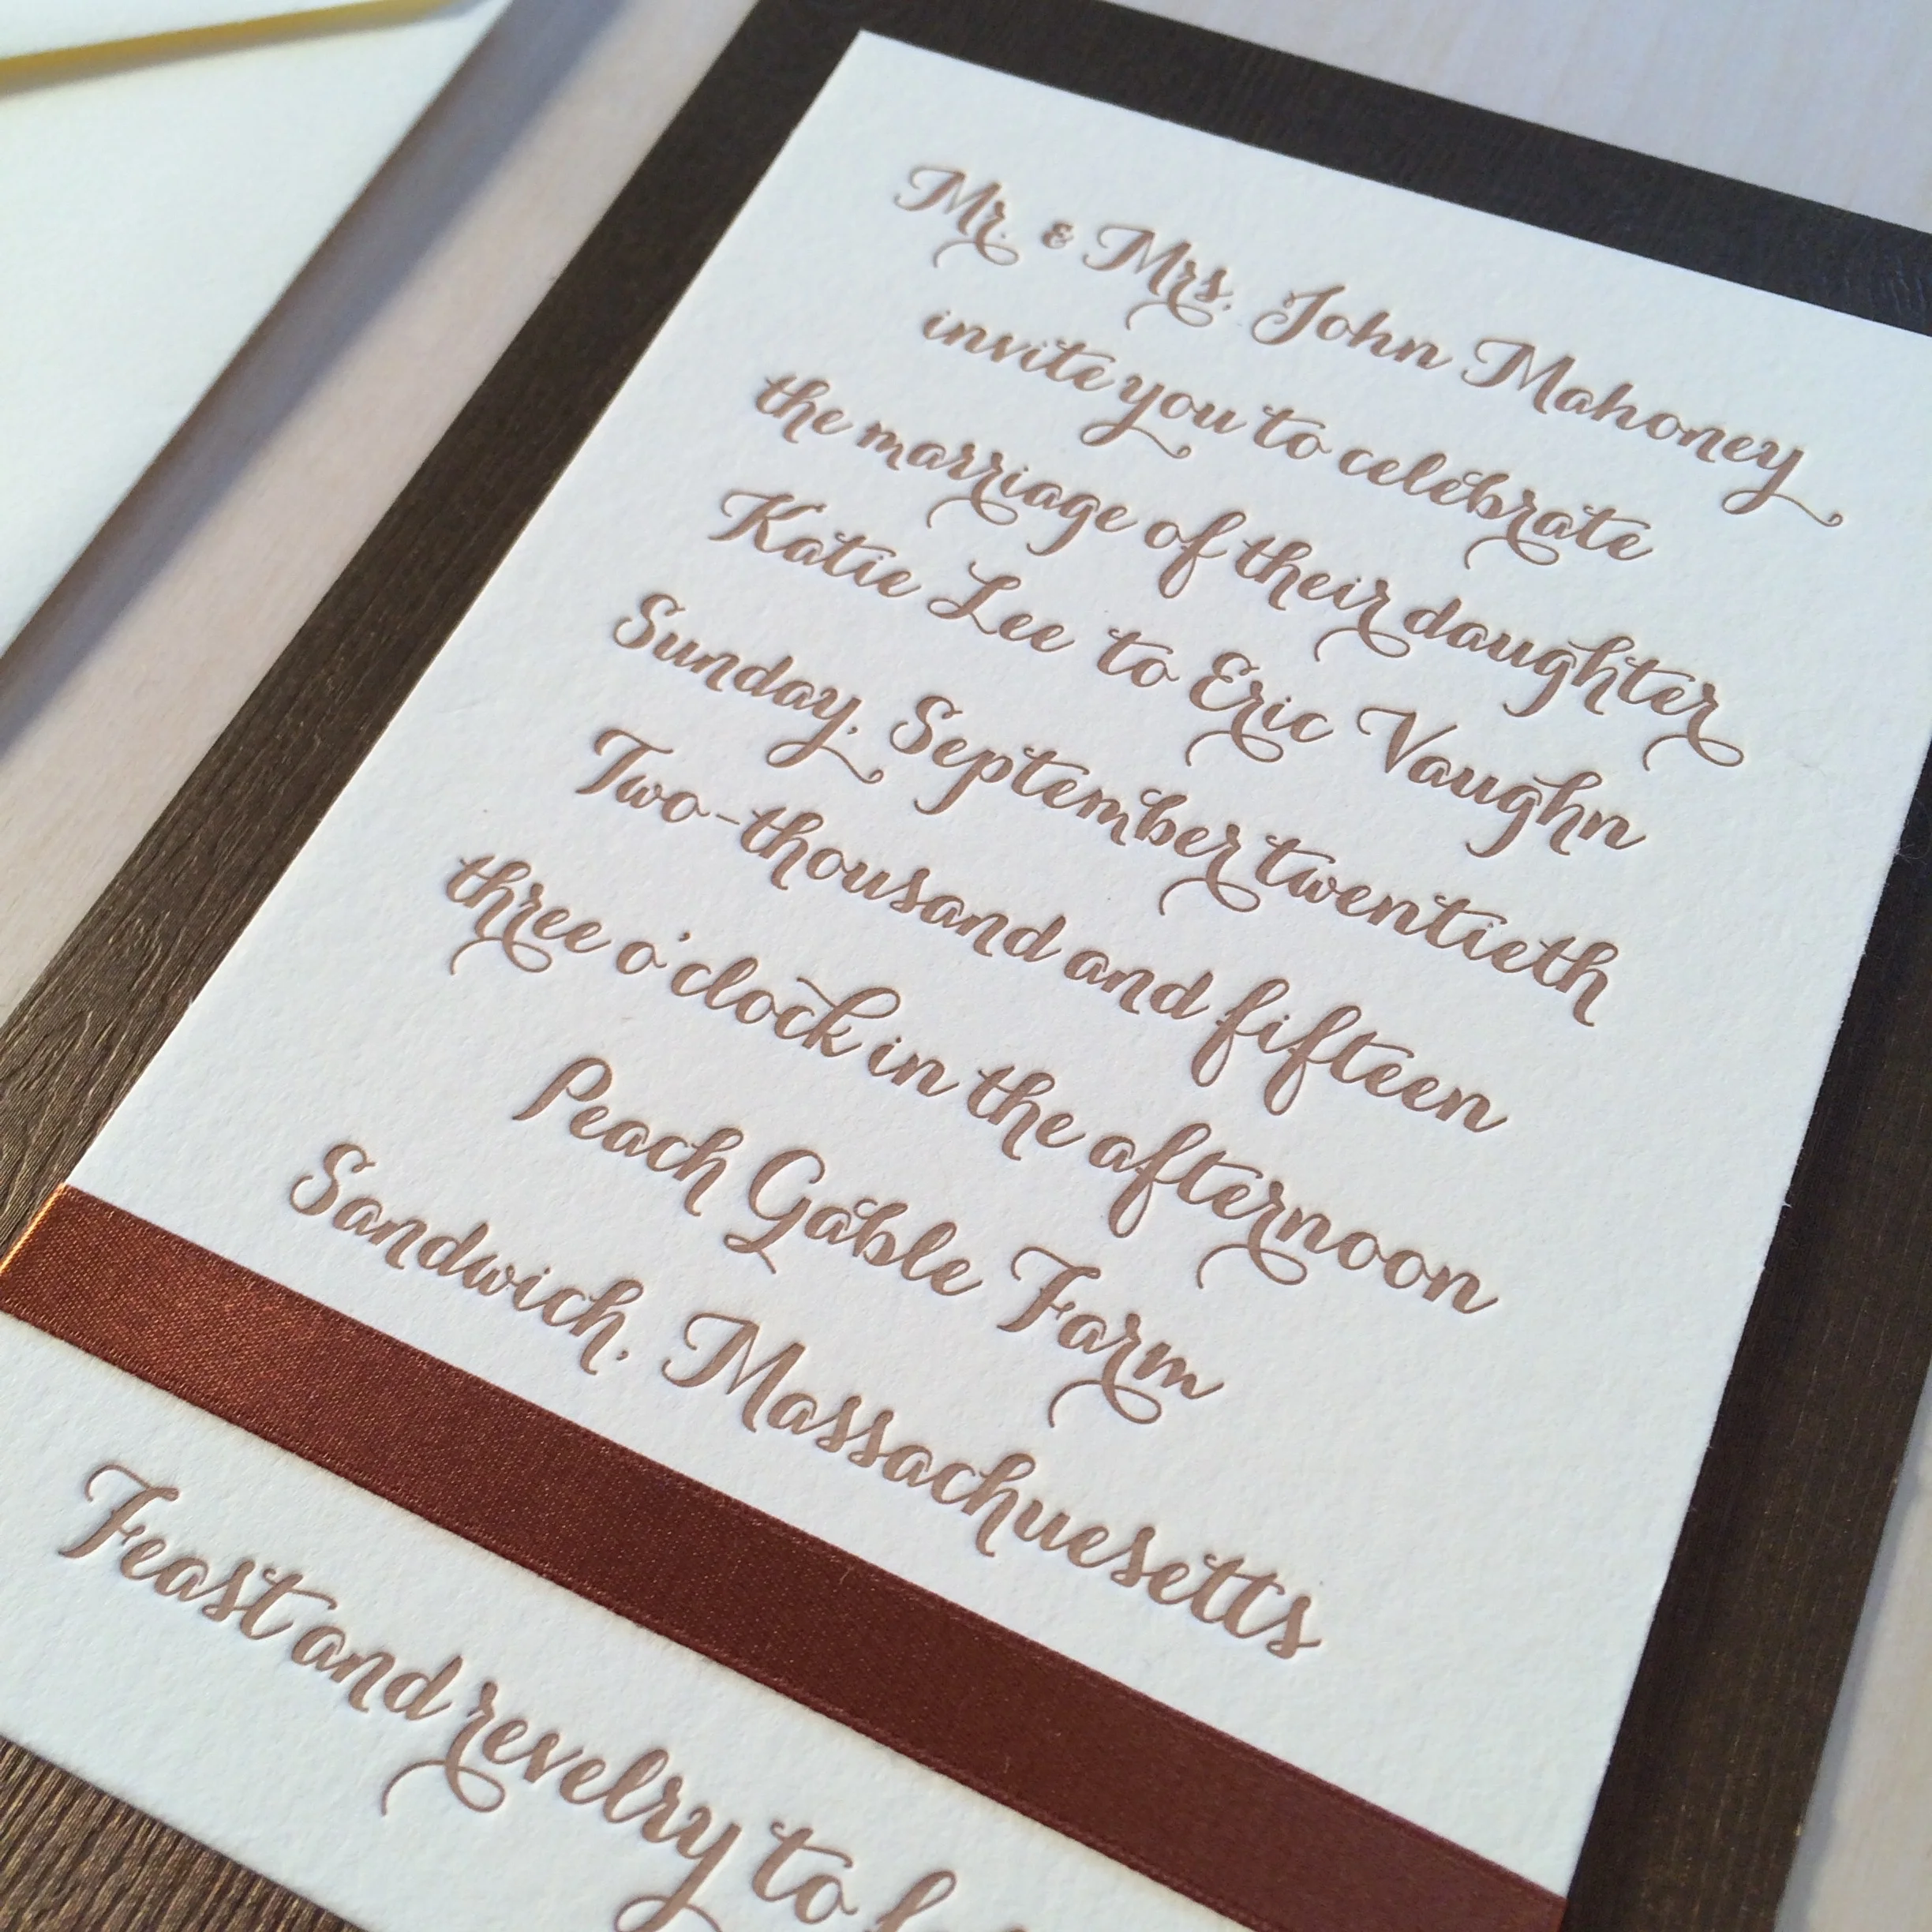 Mr. & Mrs. John Mahoney
invite you to celebrate
the marriage of their daughter
Katie Lee to Eric Vaughn
Sunday, September twentieth
Two-thousand and fifteen
three o'clock in the afternoon
Peach Gable Farm
Sandwich, Massachuesetts
Feast and revelry to